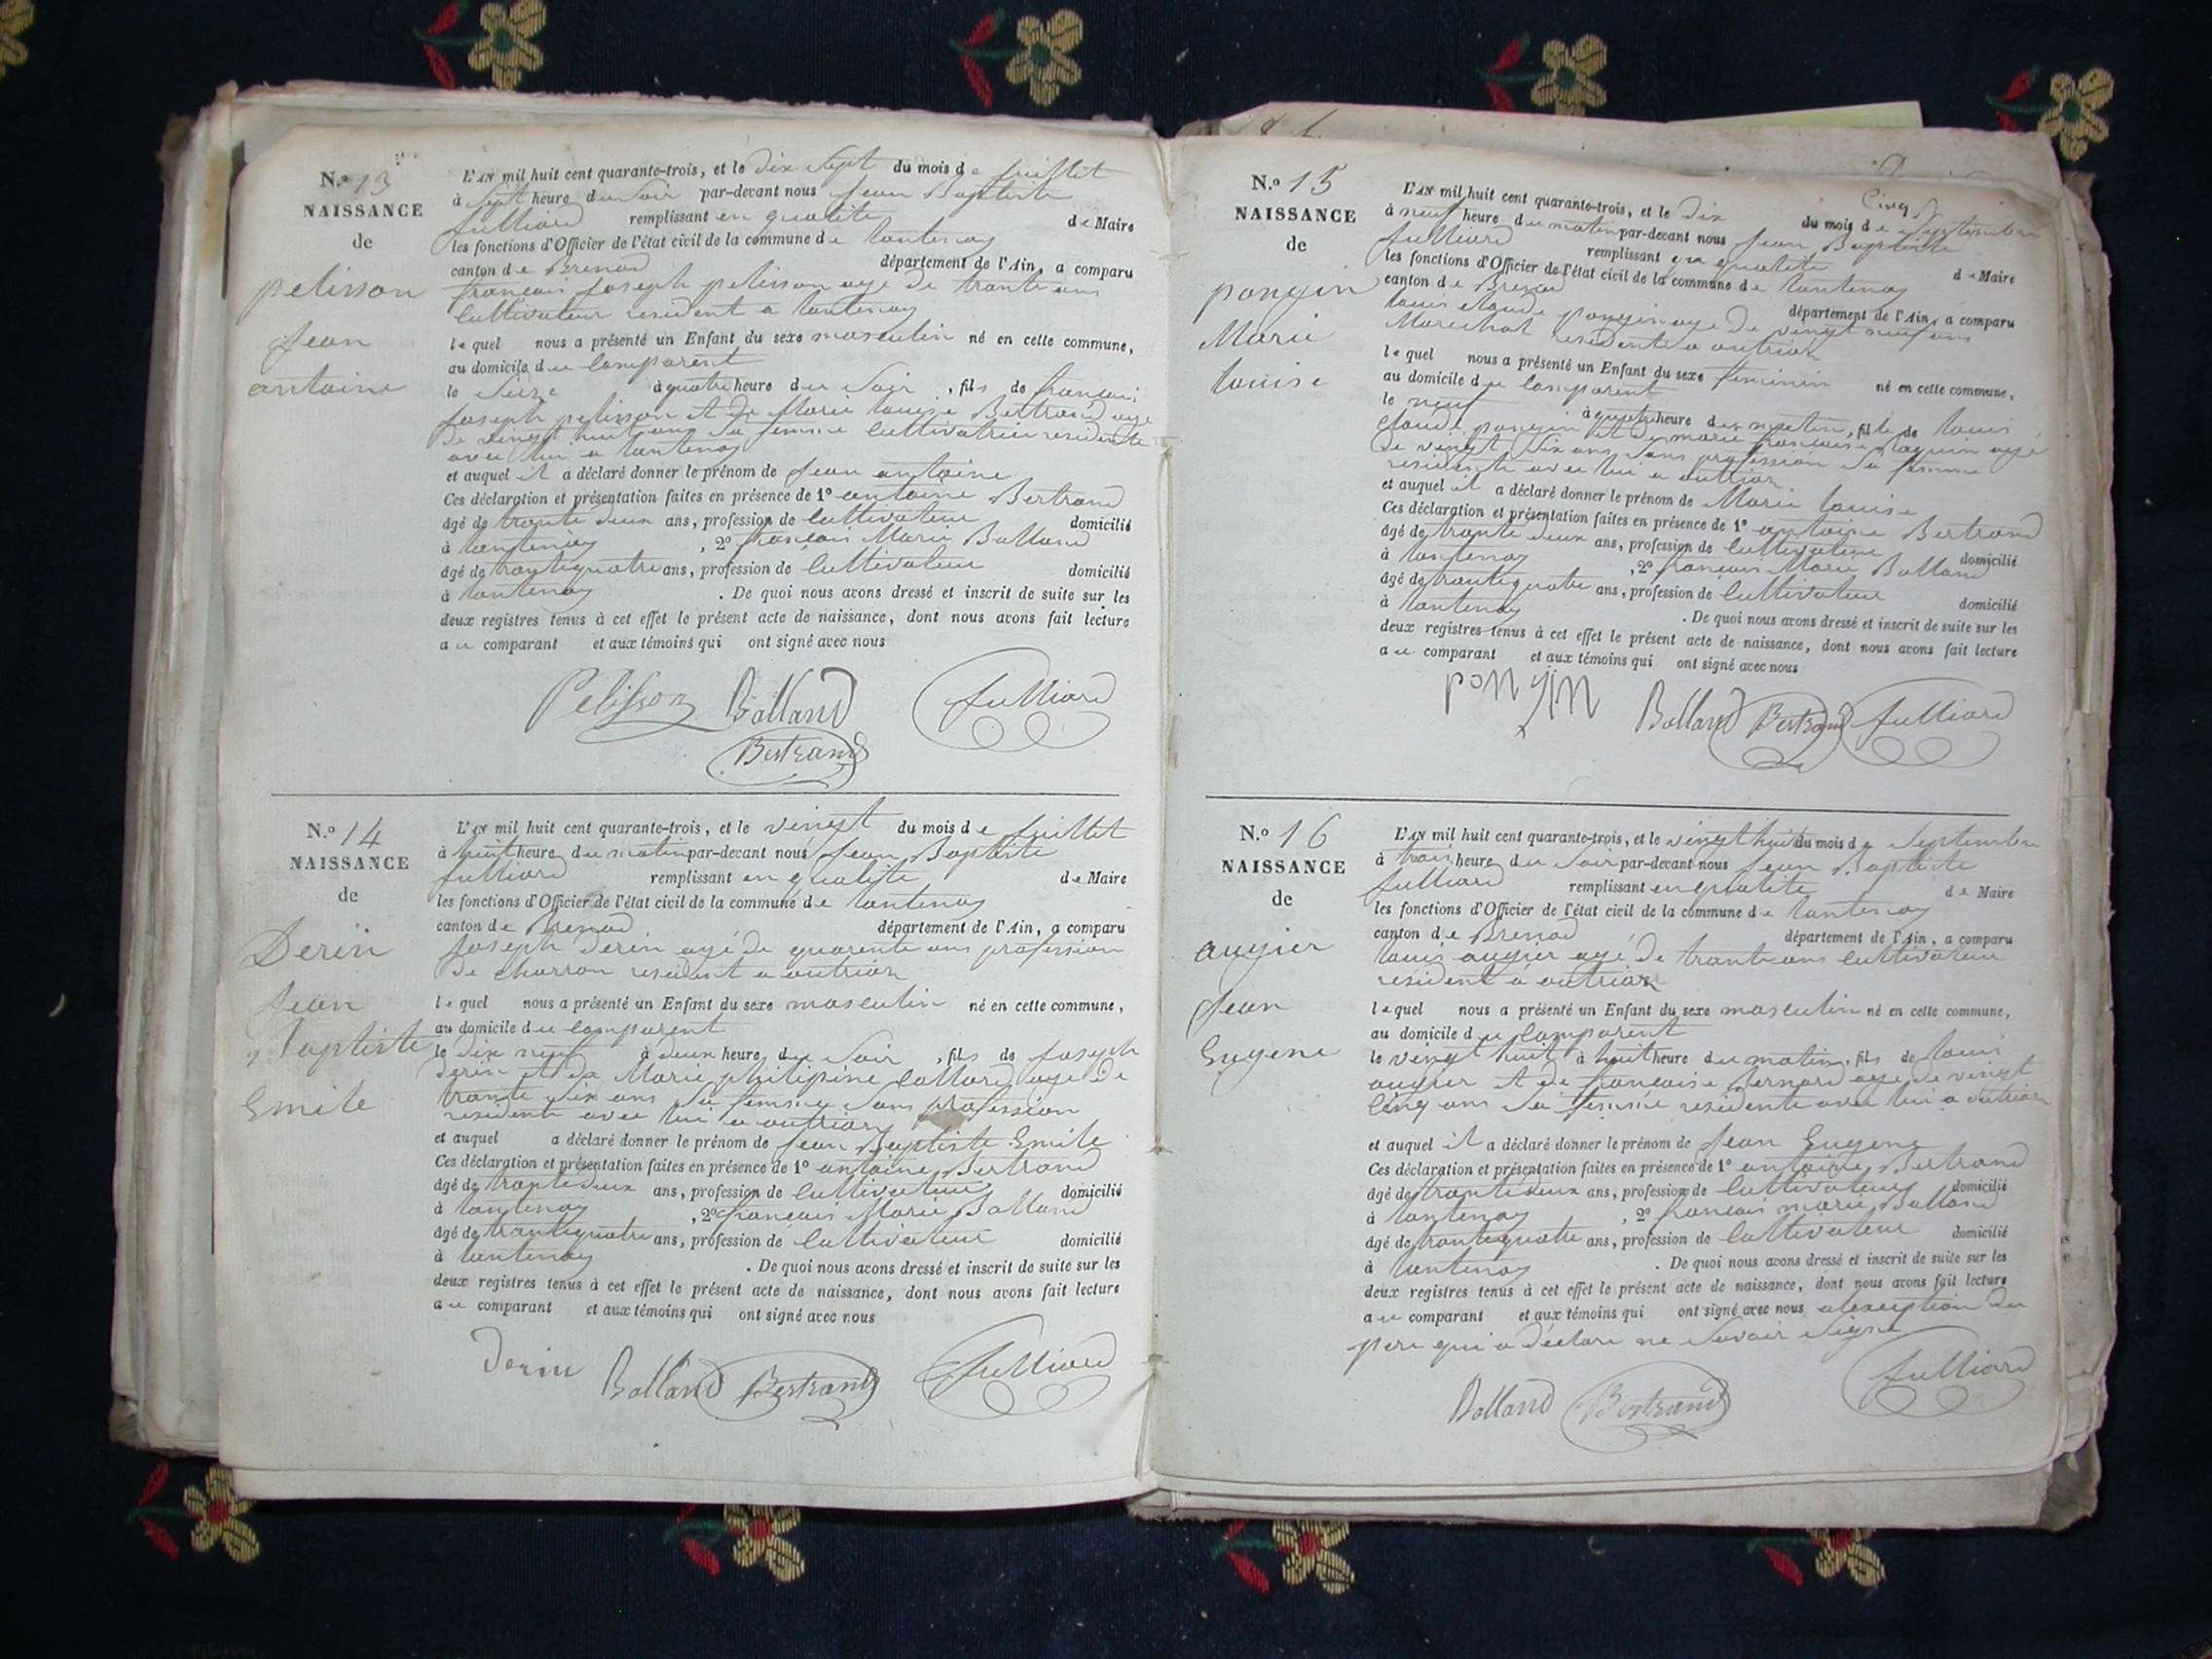 N.o 13
NAISSANCE
de
pelisson
Jean
antoine
L'AN mil huit cent quarante-trois, et le dix Sept du mois de Juillet
à Sept heure du Soir par-devant nous Jean Baptiste
Julliard remplissant en qualite de Maire
les fonctions d'Officier de l'état civil de la commune de lantenay
canton de Brenod département de l'Ain, a comparu
francois Joseph pelisson age de trante ans
Cultivateur resident a lantenay
le quel nous a présenté un Enfant du sexe masculin né en cette commune,
au domicile du Comparent
le Seize à quatre heure du Soir , fils de francois
Joseph pelisson et de Marie louise Bertrand age
de vingt huit ans Sa femme Cultivatrice residente
avec lui a lantenay
et auquel il a déclaré donner le prénom de Jean antoine
Ces déclaration et présentation faites en présence de 1o antoine Bertrand
âgé de trante deux ans, profession de Cultivateur domicilié
à lantenay , 2o francois Marie Balland
âgé de trante quatre ans, profession de Cultivateur domicilié
à lantenay . De quoi nous avons dressé et inscrit de suite sur les
deux registres tenus à cet effet le présent acte de naissance, dont nous avons fait lecture
au comparant et aux témoins qui ont signé avec nous
Pelisson Balland Julliard
Bertrand
N.o 14
NAISSANCE
de
Derin
Jean
Baptiste
Emile
L'AN mil huit cent quarante-trois, et le vingt du mois de Juillet
à huit heure du matin par-devant nous Jean Baptiste
Julliard remplissant en qualite de Maire
les fonctions d'Officier de l'état civil de la commune de lantenay
canton de Brenod département de l'Ain, a comparu
Joseph Derin agé de quarente ans profession
de charron resident a outriaz
le quel nous a présenté un Enfant du sexe masculin né en cette commune,
au domicile du Comparent
le dix neuf à deux heure du Soir , fils de Joseph
derin et de Marie philipine Collard age de
trante Six ans Sa femme Sans profession
residente avec lui a outriaz
et auquel a déclaré donner le prénom de Jean Baptiste Emile
Ces déclaration et présentation faites en présence de 1o antoine Bertrand
âgé de trante deux ans, profession de Cultivateur domicilié
à lantenay , 2o francois Marie Balland
âgé de trante quatre ans, profession de Cultivateur domicilié
à lantenay . De quoi nous avons dressé et inscrit de suite sur les
deux registres tenus à cet effet le présent acte de naissance, dont nous avons fait lecture
au comparant et aux témoins qui ont signé avec nous
Derin Balland Bertrand Julliard
N.o 15
NAISSANCE
de
pongin
Marie
louise
L'AN mil huit cent quarante-trois, et le dix du mois de Septembre
à neuf heure du matin par-devant nous Jean Baptiste
Julliard remplissant en qualite de Maire
les fonctions d'Officier de l'état civil de la commune de lantenay
canton de Brenod département de l'Ain, a comparu
louis claude pongin age de vingt neuf ans
Marechal residente a outriaz
le quel nous a présenté un Enfant du sexe feminin né en cette commune,
au domicile du Comparent
le neuf à quatre heure du matin, fille de louis
claude pongin et de marie francoise age
de vingt Six ans Sans profession Sa femme
residente avec lui a outriaz
et auquel il a déclaré donner le prénom de Marie louise
Ces déclaration et présentation faites en présence de 1o antoine Bertrand
âgé de trante deux ans, profession de Cultivateur domicilié
à lantenay , 2o francois Marie Balland
âgé de trante quatre ans, profession de Cultivateur domicilié
à lantenay . De quoi nous avons dressé et inscrit de suite sur les
deux registres tenus à cet effet le présent acte de naissance, dont nous avons fait lecture
au comparant et aux témoins qui ont signé avec nous
ponjin Balland Bertrand Julliard
N.o 16
NAISSANCE
de
augier
Jean
Eugene
L'AN mil huit cent quarante-trois, et le vingt huit du mois de Septembre
à trois heure du Soir par-devant nous Jean Baptiste
Julliard remplissant en qualite de Maire
les fonctions d'Officier de l'état civil de la commune de lantenay
canton de Brenod département de l'Ain, a comparu
louis augier agé de trante ans cultivateur
resident a outriaz
le quel nous a présenté un Enfant du sexe masculin né en cette commune,
au domicile du Comparent
le vingt huit à huit heure du matin, fils de louis
augier et de francoise Bernard age de vingt
Cinq ans Sa femme residente avec lui a outriaz
et auquel il a déclaré donner le prénom de Jean Eugene
Ces déclaration et présentation faites en présence de 1o antoine Bertrand
âgé de trante deux ans, profession de Cultivateur domicilié
à lantenay , 2o francois marie Balland
âgé de trante quatre ans, profession de Cultivateur domicilié
à lantenay . De quoi nous avons dressé et inscrit de suite sur les
deux registres tenus à cet effet le présent acte de naissance, dont nous avons fait lecture
au comparant et aux témoins qui ont signé avec nous alexception du
pere qui a declare ne Savoir Signe
Balland Bertrand Julliard